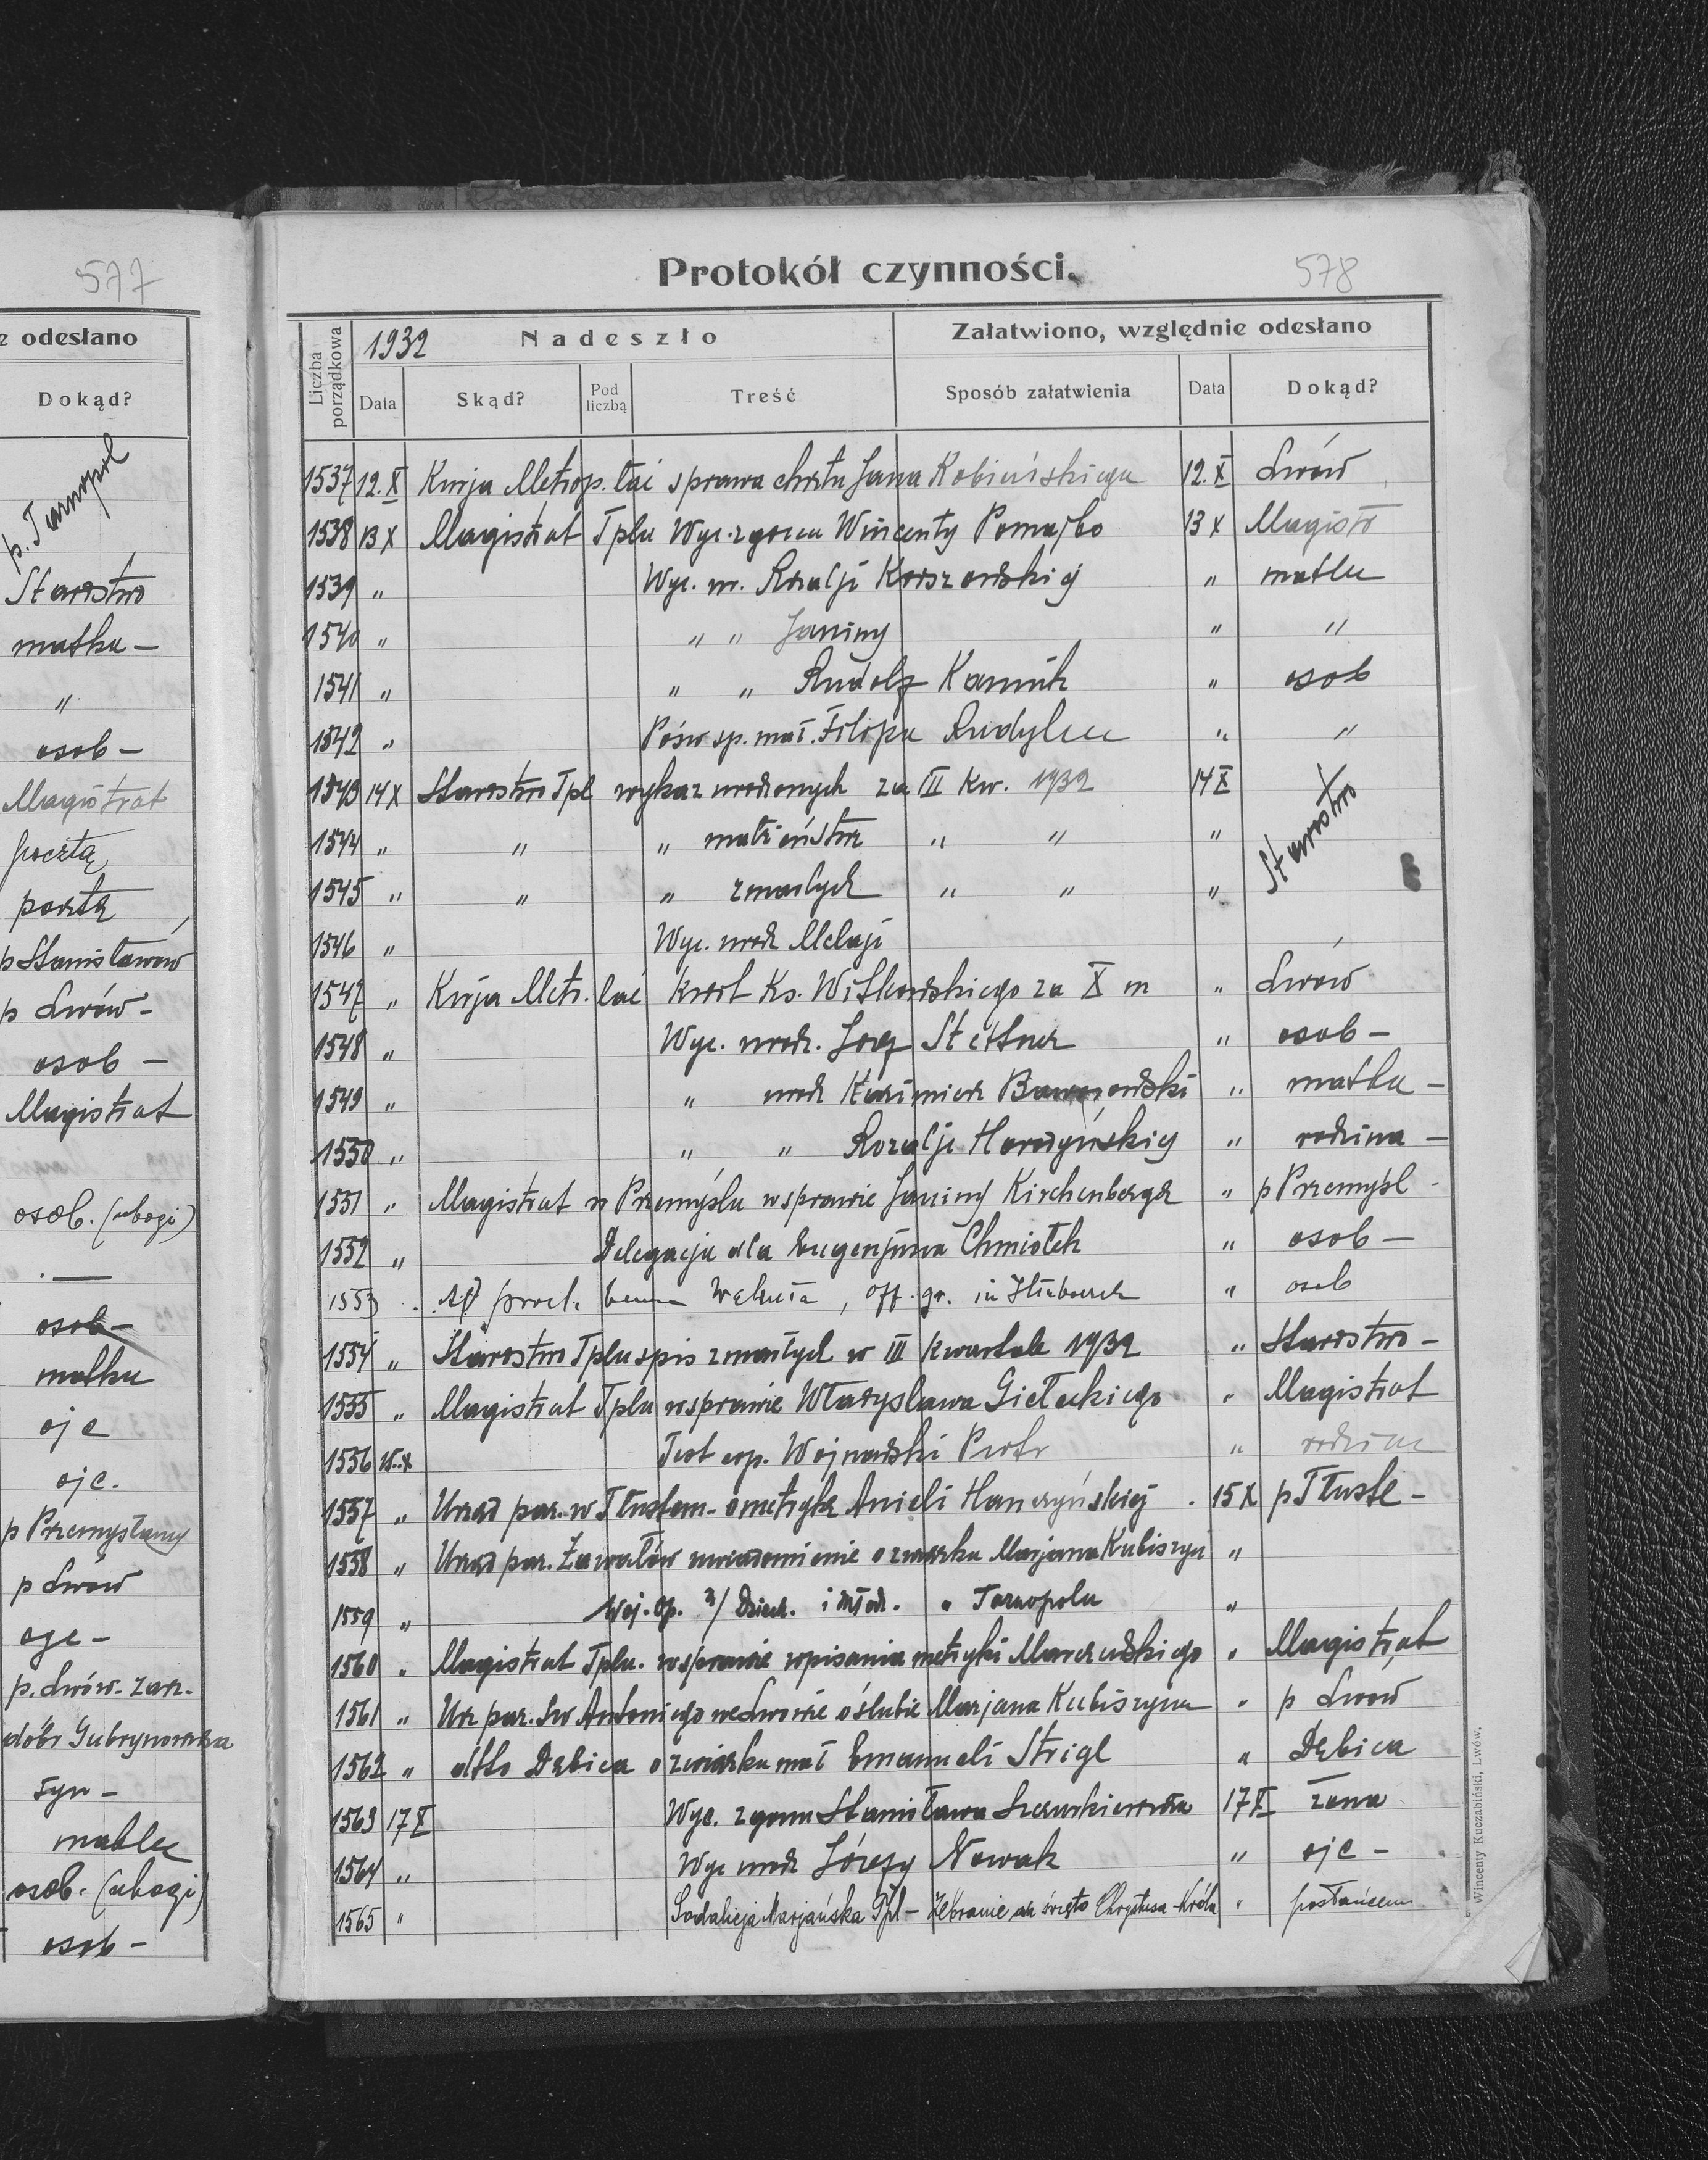 577
e odesłano
Dokąd?
p. Tarnopol
Starostwo
matka –
"
osob –
Magistrat
pocztą
pocztą
p Stanisławów
p Lwów –
osob –
Magistrat
osob. (ubogi)
. —
osob –
matka
ojc
ojc.
p Przemyślany
p Lwów
ojc –
p. Lwów – zarz.
dóbr Gubrynowicza
syn –
matka
osob. (ubogi)
osob –
Protokół czynności.
578
Liczba porządkowa
1932 Nadeszło
Załatwiono, względnie odesłano
Data Skąd? Pod liczbą Treść Sposób załatwienia Data Dokąd?
1537 12.X Kurja Metrop. łać sprawa chrztu Jana Robińskiego 12.X Lwów
1538 13 X Magistrat Tplu Wyc. zgonu Wincenty Pomajbo 13 X Magistr
1539 " Wyc. ur. Rozalji Korszowskiej " matka
1540 " " " Janiny " "
1541 " " " Rudolf Kannik " osob
1542 " Pośw sp. mał. Filipa Rudyka " "
1543 14 X Starostwo Tpl wykaz urodzonych za III Kw. 1932 14 X Starostwo
1544 " " " małżeństw " " "
1545 " " " zmarłych " " "
1546 " Wyc. urodz Melaji
1547 " Kurja Metr. łać Ks. Witkowskiego za X m " Lwów
1548 " Wyc. urodz. Józef Stettner " osob –
1549 " " urodz Kazimierz Baworowski " matka –
1550 " " " Rozalji Horodyńskiej " rodzina –
1551 " Magistrat w Przemyślu w sprawie Janiny Kirchenberger " p Przemyśl –
1552 " Delegacja dla Eugenjusza Chmiołek " osob –
1553 . , off. gr. in " osob
1554 " Starostwo Tplu spis zmarłych w III kwartale 1932 " Starostwo –
1555 " Magistrat Tplu w sprawie Władysława Giełeckiego " Magistrat
1556 15.X Test Wojnarski Piotr " rodzina
1557 " Urząd par. w Tłustem o metrykę Anieli Hanczyńskiej . 15 X p Tłuste –
1558 " Urząd par. Zawałów uwiadomienie o związku Marjana Kubiszyn "
1559 " Woj. op. n/ Dzieck. i Młodz. w Tarnopolu "
1560 " Magistrat Tplu. w sprawie wpisania metryki Marczewskiego " Magistrat
1561 " Urz par. św Antoniego we Lwowie o ślubie Marjana Kubiszyna " p Lwów
1562 " dtto Dębica o związku mał Emanueli Strigl " Dębica
1563 17 X Wyc. zgonu Stanisława 17 X żona
1564 " Wyc urodz Józefy Nowak " ojc –
1565 " Sodalicja Marjańska Tpl – Zebranie na święto Chrystusa-Króla " posłańcem
Wincenty Kuczabiński, Lwów.